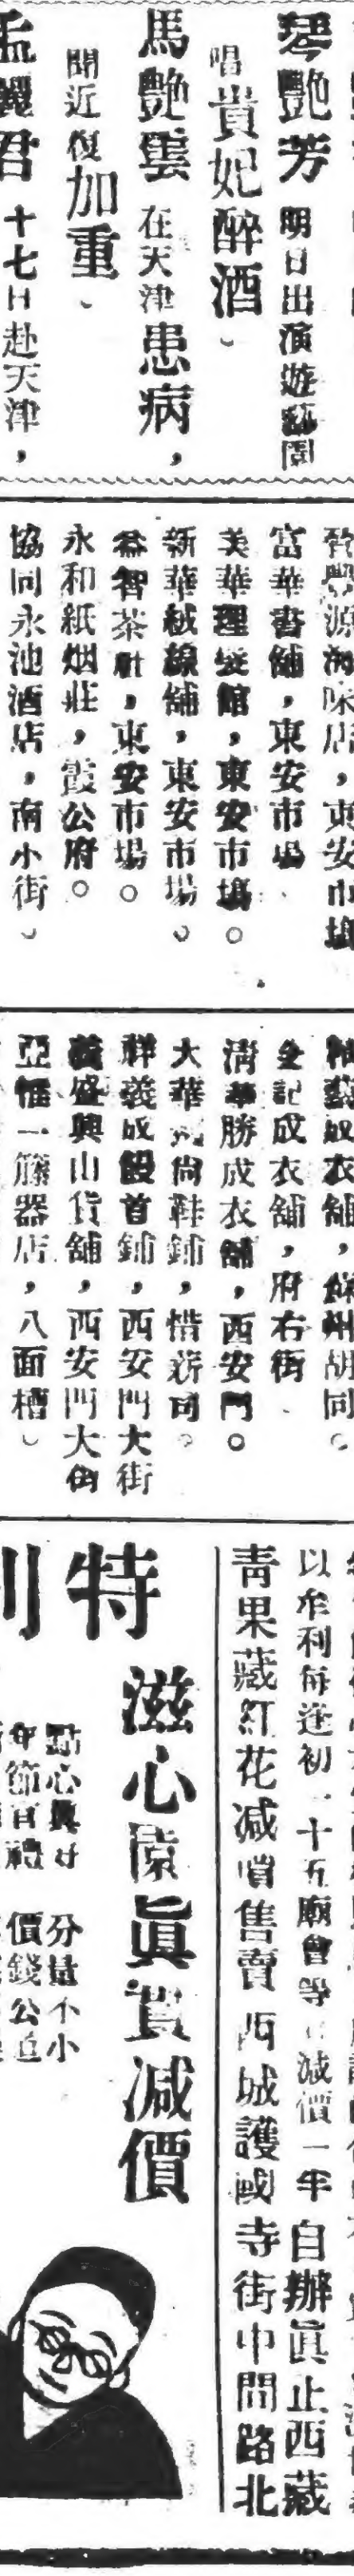 琴艷芳 明日出演遊藝園
唱貴妃醉酒、
馬艷雲 在天津患病，
聞近復加重、
孟麗君 十七日赴天津，
源海味店，東安市場
富華書舖，東安市場、
美華理髮館，東安市場。
新華絨線舖，東安市場。
益智茶社，東安市場。
永和紙烟莊，霞公府。
協同永池酒店，南小街、
衣舖，蘇州胡同。
全記成衣舖，府右街、
清華勝成衣舖，西安門。
大華尚鞋舖，惜薪司。
祥義成饅首鋪，西安門大街
盛興山貨舖，西安門大街
亞一籐器店，八面槽、
以牟利每逢初一十五廟會等日減價一半 自辦眞正西藏
青果藏紅花減售賣 西城護國寺街中間路北
特別
滋心園眞實減價
點心 分量不小
年節 禮 價錢公道